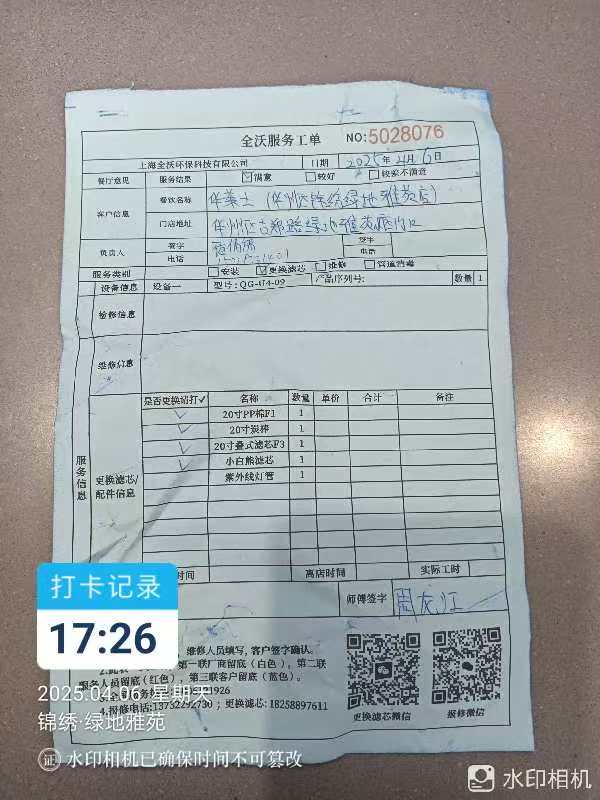 全沃服务工单 NO:5028076
上海全沃环保科技有限公司 日期 2025年4月6日
餐厅意见 服务结果 ☑满意 □较好 □较不满意
客户信息 餐饮名称 华莱士
门店地址
负责人 签字 签字
电话 电话
服务类别 □安装 ☑更换滤芯 □维修 □管道消毒
设备信息 设备一 型号:QG-U4-09 产品序列号: 数量 1
检修信息
维修信息
服务信息
更换滤芯/配件信息
是否更换请打✓ 名称 数量 单价 合计 备注
✓ 20寸PP棉F1 1
✓ 20寸炭棒 1
✓ 20寸叠式滤芯F3 1
✓ 小白熊滤芯 1
紫外线灯管 1
时间 离店时间 实际工时
师傅签字 周龙江
维修人员填写,客户签字确认。
第一联厂商留底(白色),第二联
服务人员留底(红色),第三联客户留底(蓝色)。
1926
4.报修电话:13732292730;更换滤芯:18258897611
更换滤芯微信 报修微信
打卡记录
17:26
2025.04.06 星期天
锦绣·绿地雅苑
证 水印相机已确保时间不可篡改
水印相机